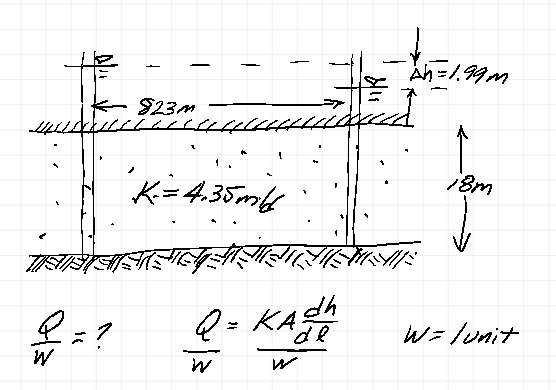 Δh = 1.99m
823m
18m
K = 4.35m/d
Q/W = ? Q/W = KA dh/dl / W W = 1 unit